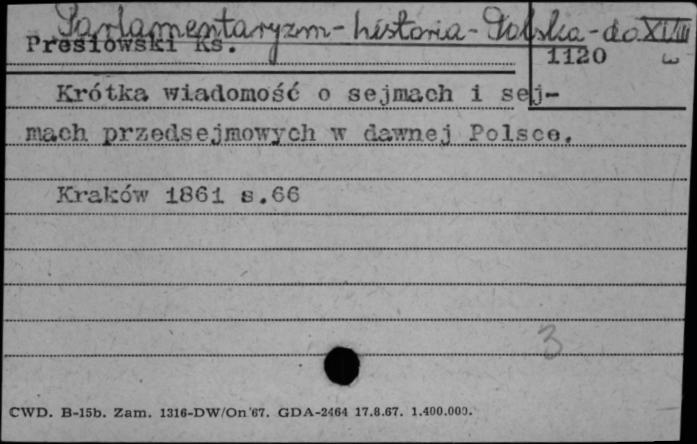 Parlamentaryzm - historia - Polska - do XVIII
Presłowski Ks.
1120
Krótka wiadomość o sejmach i sej-
mach przedsejmowych w dawnej Polsce.
Kraków 1861 s.66
3
CWD. B-15b. Zam. 1316-DW/On'67. GDA-2464 17.8.67. 1.400.000.